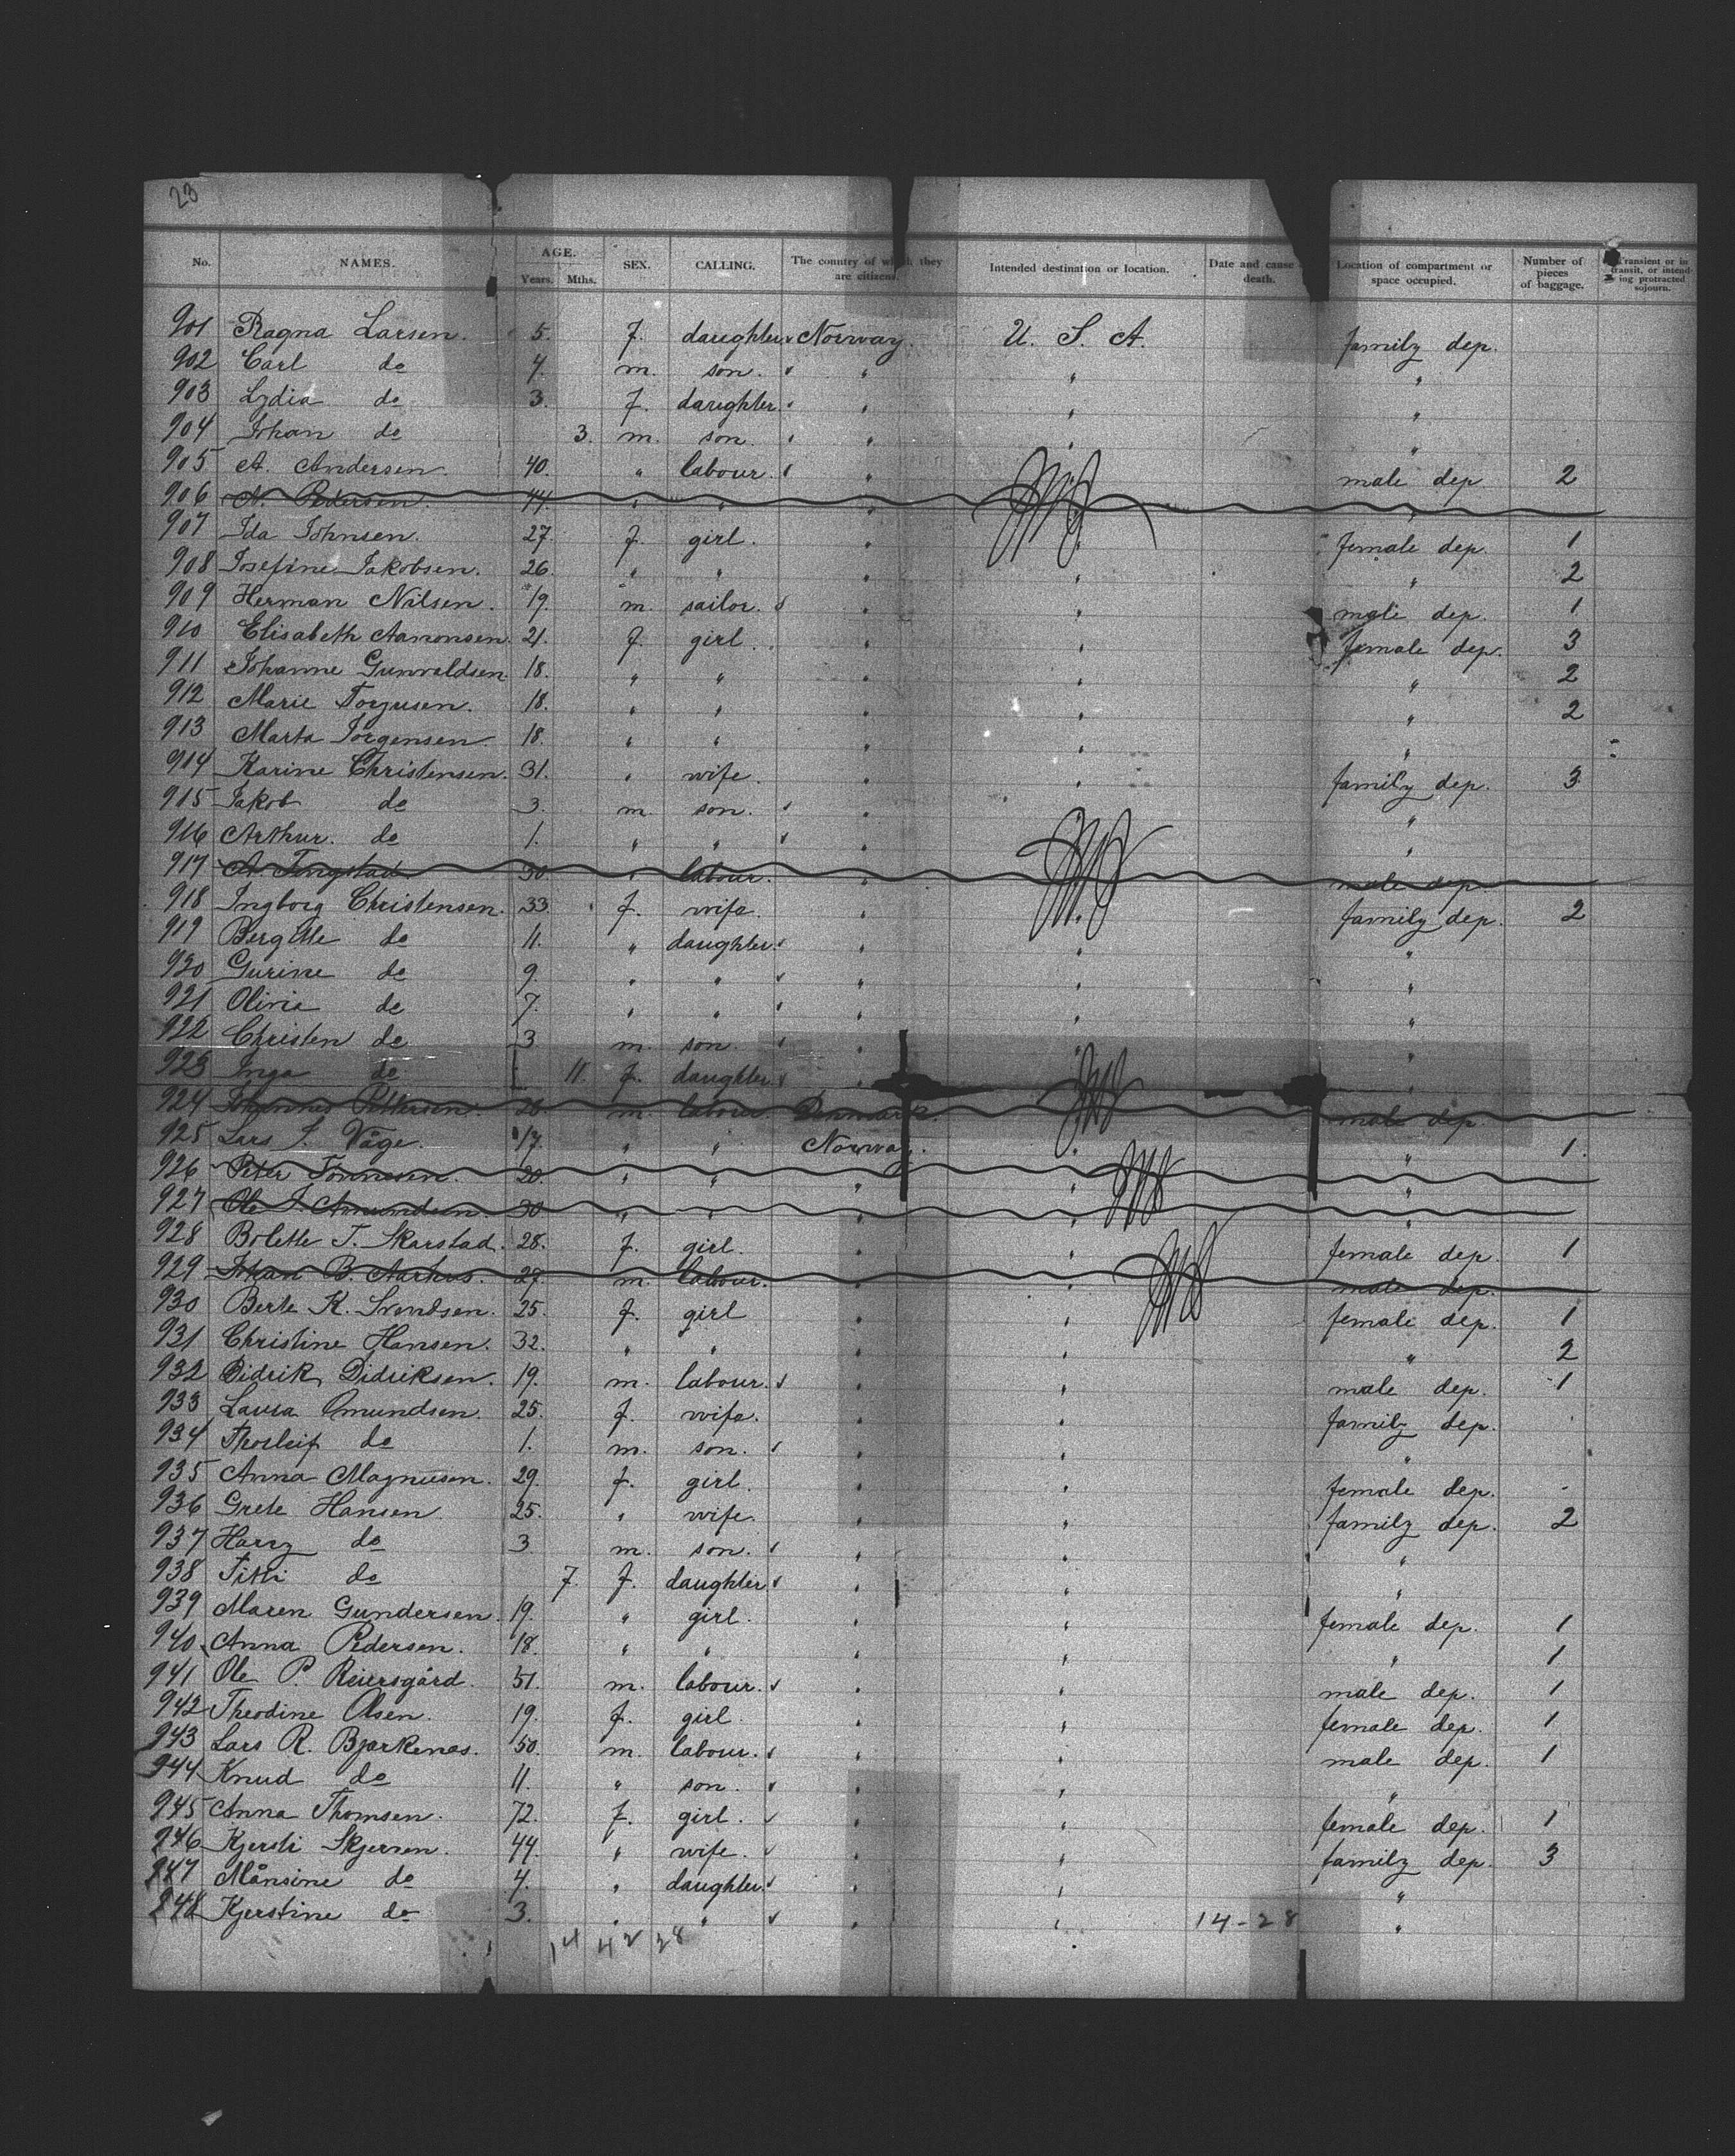 23
No. NAMES. AGE. Years. Mths. SEX. CALLING. The country of which they are citizens. Intended destination or location. Date and cause death. Location of compartment or space occupied. Number of pieces of baggage. Transient or in transit, or intending protracted sojourn.
901 Ragna Larsen. 5. f. daughter Norway. U. S. A. family dep.
902 Carl do 4. m. son. " " "
903 Lydia do 3. f. daughter. " " "
904 Johan do 3. m. son. " " "
905 A. Andersen. 40. " labour. " " male dep 2
906 N. Pedersen. 44. " " " "
907 Ida Johnsen. 27. f. girl. " " female dep. 1
908 Josefine Jakobsen. 26. " " " " " 2
909 Herman Nilsen. 19. m. sailor. " " male dep. 1
910 Elisabeth Aamonsen. 21. f. girl. " " female dep. 3
911 Johanne Gunvaldsen 18. " " " " " 2
912 Marie Torjusen. 18. " " " " " 2
913 Marta Jörgensen 18. " " " " "
914 Karine Christensen. 31. " wife. " " family dep. 3
915 Jakob do 3. m. son. " " "
916 Arthur. do 1. " " " "
917 A. Tingstad. 30 " labour. " male dep.
918 Ingborg Christensen. 33. f. wife. " " family dep. 2
919 Bergitte do 11. " daughter. " " "
920 Gurine do 9. " " " " "
921 Olivia do 7. " " " " "
922 Christen do 3 m. son. " " "
923 Inga do 11. f. daughter " "
924 Johannes Pettersen. 26. m. labour. Denmark. male dep.
925 Lars S. Våge. 17. " " Norway. " " 1.
926 Peter Tönnesen. 20. " " " " "
927 Ole J. Amundsen. 30 " " " " "
928 Bolette T. Skarstad. 28. f. girl. " " female dep. 1
929 Johan B. Aarhus. 27. m. labour. " " male dep.
930 Berte K. Svendsen. 25. f. girl " " female dep. 1
931 Christine Hansen. 32. " " " " " 2
932 Didrik Didriksen. 19. m. labour. " " male dep. 1
933 Laura Omundsen. 25. f. wife. " " family dep.
934 Thorleif do 1. m. son. " " "
935 Anna Magnusen. 29. f. girl. " " female dep.
936 Grete Hansen 25. " wife. " " family dep. 2
937 Harry do 3 m. son. " " "
938 Titti do 7. f. daughter " " "
939 Maren Gundersen. 19. " girl. " " female dep. 1
940 Anna Pedersen. 18. " " " " " 1
941 Ole P. Reiersgård. 51. m. labour. " " male dep. 1
942 Theodine Olsen. 19. f. girl. " " female dep. 1
943 Lars R. Bjerkenes. 50. m. labour. " " male dep. 1
944 Knud do 11. " son. " " "
945 Anna Thomsen. 72. f. girl. " " female dep. 1
946 Kjersti Skjersen. 44. " wife. " " family dep. 3
947 Månsine do 4. " daughter. " " "
948 Kjerstine do 3. " " " " 14-28 "
14 42 28